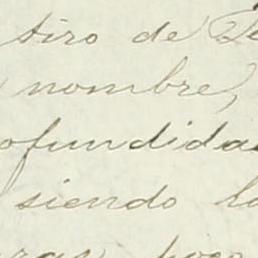 tiro de
nombre,
ofundida
siendo lo